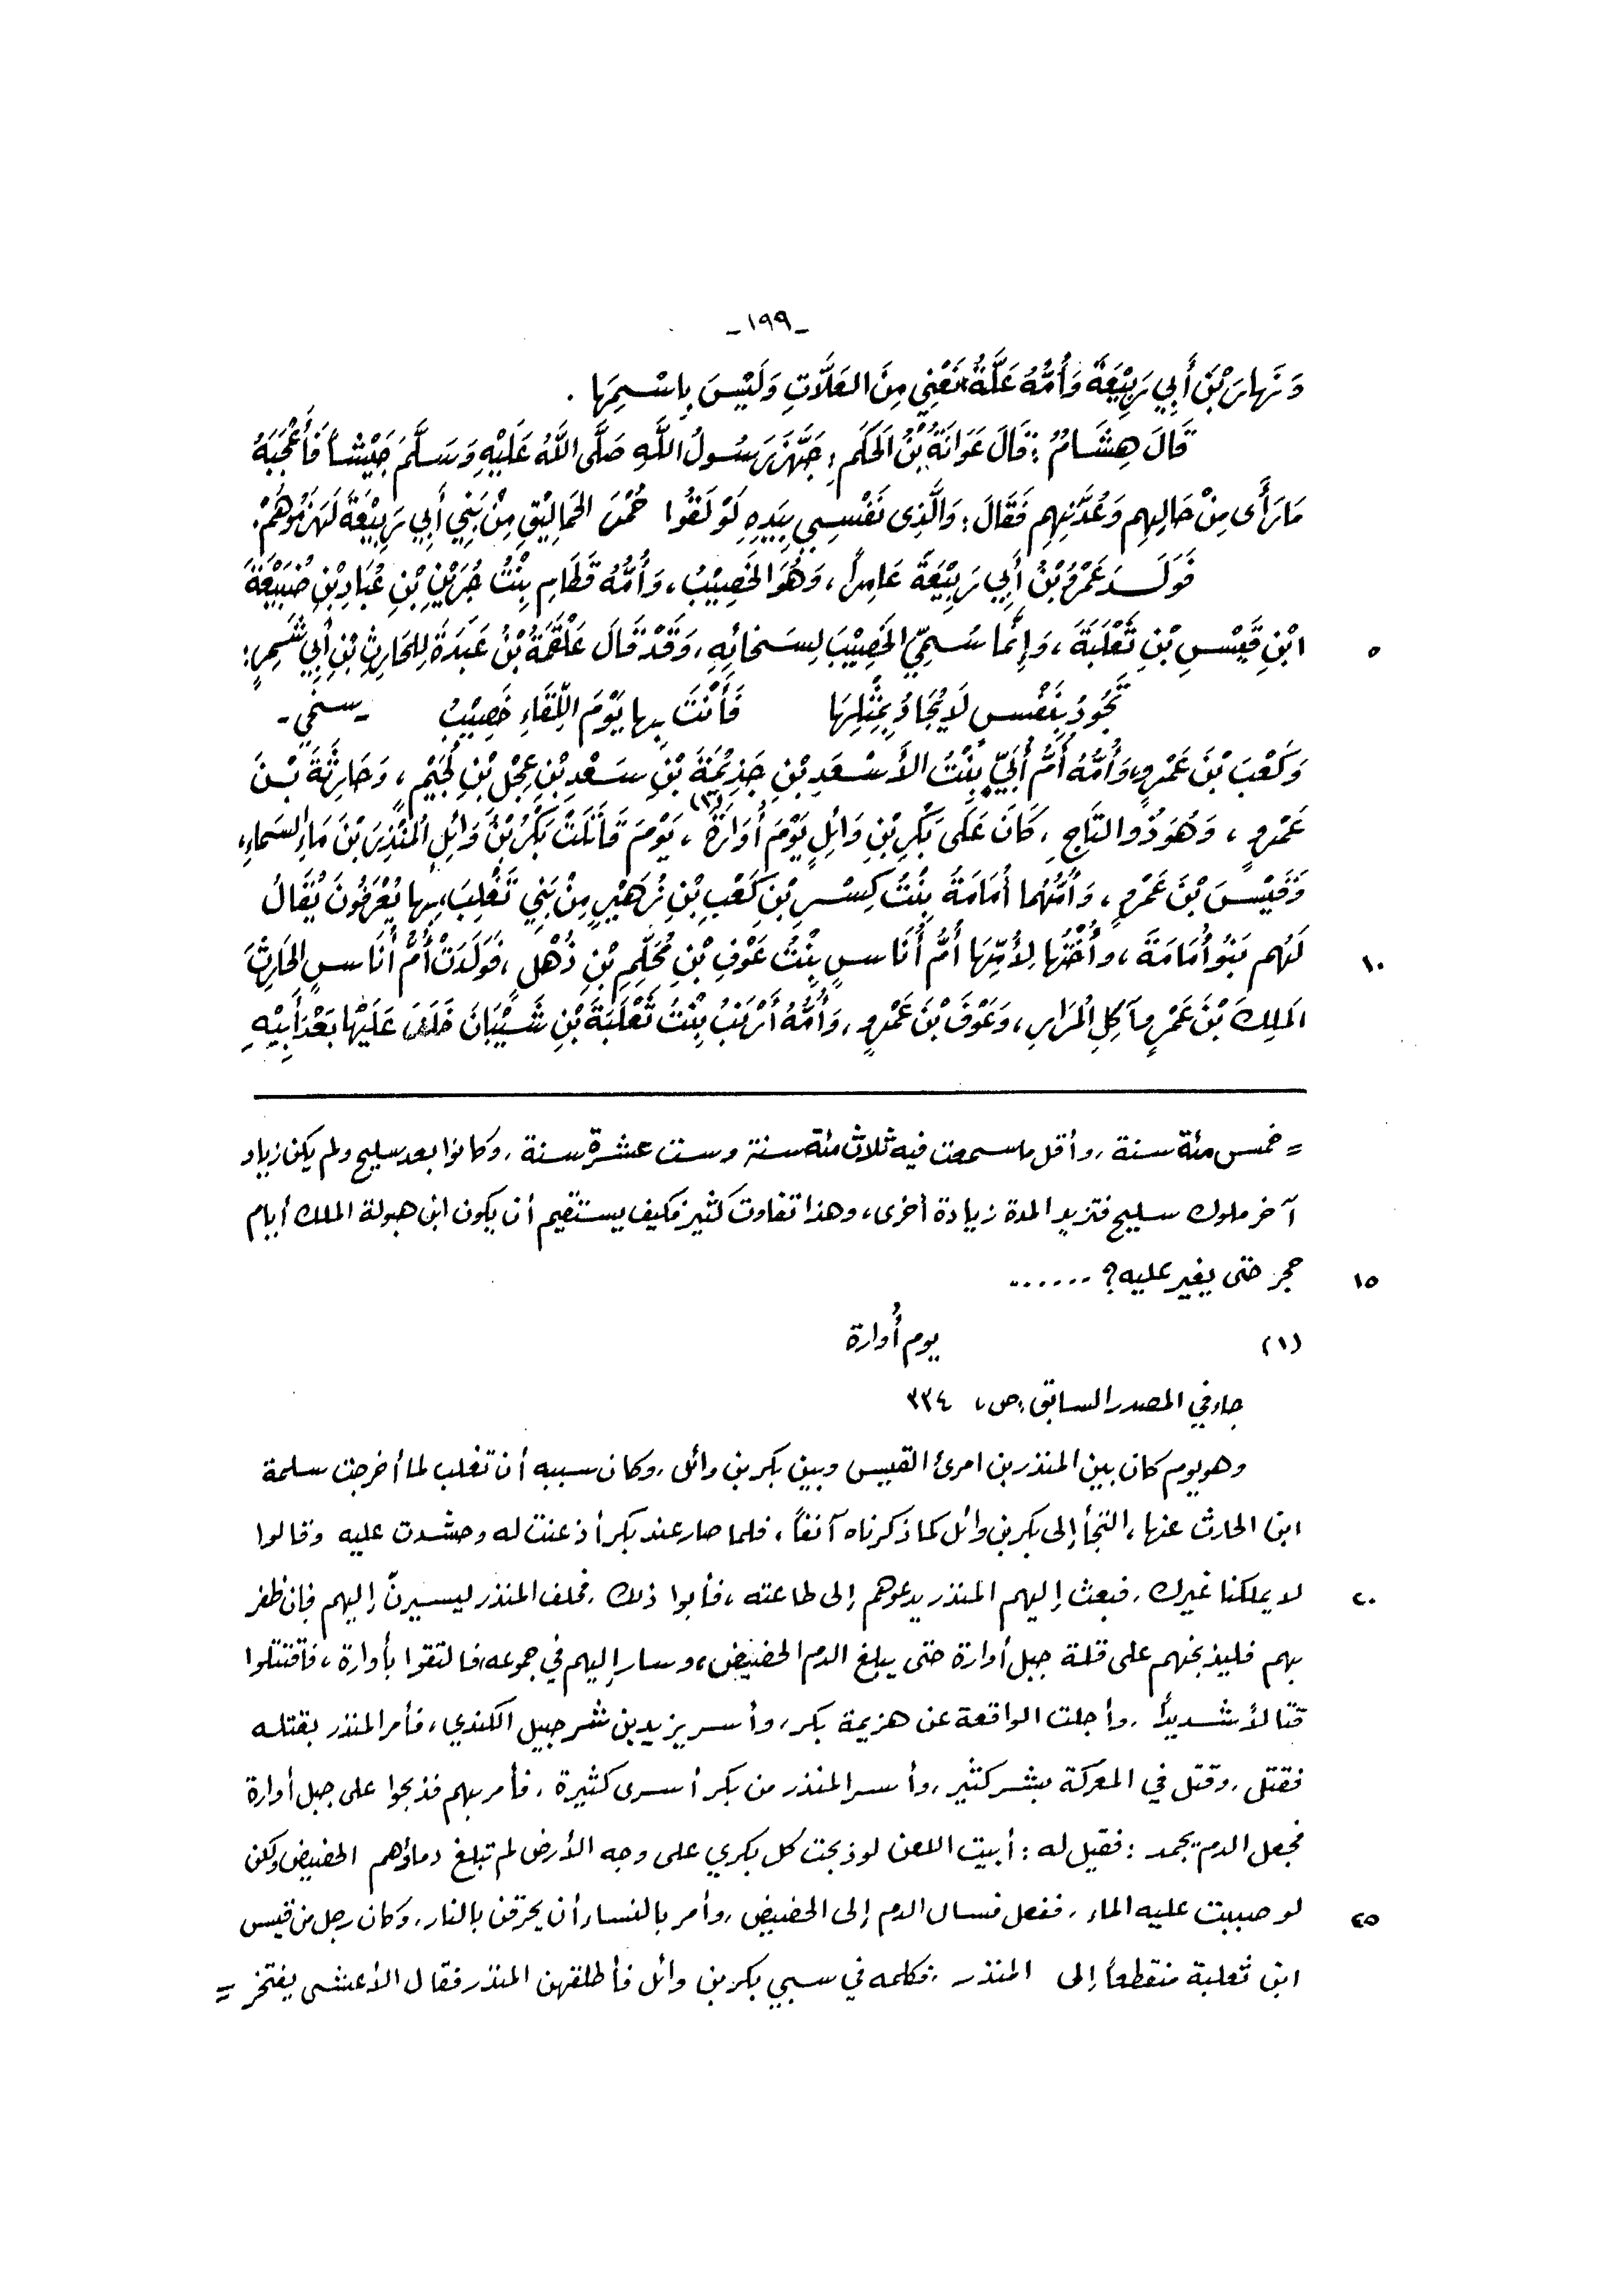 -١٩٩-
وَنَهارَ بْنَ أَبِي رَبِيْعَةَ وَأُمُّهُ عَلَّةُ نَعْنِي مِنَ العَلَّاتِ وَلَيْسَ بِاسْمِهَا .
قَالَ هِشَامُ : قَالَ عَوَانَةُ بْنُ الحَكَمِ: جَهَّزَ رَسُولُ اللَّهِ صَلَّى اللَّهُ عَلَيْهِ وَسَلَّمَ جَيْشاً فَأَعْجَبَهُ
مَا رَأَى مِنْ حَالِهِم وَعُدَّتِهِم فَقَالَ: وَالَّذِى نَفْسِي بِيَدِهِ لَوْ لَقُوا حُمْسَ الحَمالِيْقِ مِنْ بَنِي أَبِي رَبِيْعَةَ لَهَزَمُوهُمْ.
فَوَلَدَ عَمْرُو بْنُ أَبِي رَبِيْعَةَ عَامِراً، وَهُوَ الخَصِيْبُ، وَأُمُّهُ قَطَامِ بِنْتُ جُرَيْنِ بْنِ عُبَادِ بْنِ ضُبَيْعَةَ
ابْنِ قَيْسِ بْنِ ثَعْلَبَةَ، وَإِنَّما سُمِّيَ الخَصِيْبَ لِسَخائِهِ، وَقَدْ قَالَ عَلْقَمَةُ بْنُ عَبَدَةَ لِلحَارِثِ بْنِ أَبِي شَمِرٍ: ٥
تَجُودُ بِنَفْسٍ لَا يُجَادُ بِمِثْلِهَا فَأَنْتَ بِها يَوْمَ اللِّقَاءِ خَصِيْبُ -سخي-
وَكَعْبَ بْنَ عَمْرٍو، وَأُمُّهُ أُمُّ أُبَيٍّ بِنْتُ الأَسْعَدِ بْنِ جَذِيْمَةَ بْنِ سَعْدِ بْنِ عِجْلِ بْنِ لُجَيْمٍ، وَحَارِثَةَ بْنَ
عَمْرٍو، وَهُوَ ذُو التَّاجِ، كَانَ عَلَى بَكْرِ بْنِ وَائِلٍ يَوْمَ أُوَارَةَ (١)، يَوْمَ قَاتَلَتْ بَكْرُ بْنُ وَائِلٍ المُنْذِرَ بْنَ مَاءِ السَّماءِ،
وَقَيْسَ بْنَ عَمْرٍو، وَأُمُّهُما أُمَامَةُ بِنْتُ كِسْرِ بْنِ كَعْبِ بْنِ زُهَيْرٍ مِنْ بَنِي تَغْلِبَ، بِها يُعْرَفُونَ يُقَالُ
لَهُم بَنُو أُمَامَةَ، وأُخْتُها لِأُمِّهَا أُمُّ أُنَاسٍ بِنْتُ عَوْفِ بْنِ مُحَلِّمِ بْنِ ذُهْلٍ، فَوَلَدَتْ أُمُّ أُنَاسٍ الحَارِثَ ١٠
المَلِكَ بْنَ عَمْرٍو آكِلِ المُرَارِ، وَعَوْفَ بْنَ عَمْرٍو، وَأُمُّهُ أَرْنَبُ بِنْتُ ثَعْلَبَةَ بْنِ شَيْبَانَ خَلَفَ عَلَيْها بَعْدَ أَبِيْهِ
= خمس مئة سنة، وأقل ما سمعت فيه ثلاث مئة سنة وست عشرة سنة، وكانوا بعد سليح ولم يكن زياد
آخر ملوك سليح فتزيد المدة زيادة أخرى، وهذا تفاوت كثير فكيف يستقيم أن يكون ابن هبولة الملك أيام
حجر حتى يغير عليه؟ ...... ١٥
(١) يوم أُوارة
جاء في المصدر السابق، ص، ٣٣٤
وهو يوم كان بين المنذر بن امرئ القيس وبين بكر بن وائل، وكان سببه أن تغلب لما أخرجت سلمة
ابن الحارث عنها، التجأ إلى بكر بن وائل كما ذكرناه آنفاً، فلما صار عند بكر أذعنت له وحشدت عليه وقالوا
لا يملكنا غيرك، فبعث إليهم المنذر يدعوهم إلى طاعته، فأبوا ذلك، فحلف المنذر ليسيرنّ إليهم فإن ظفر ٢٠
بهم فليذبحنهم على قلة جبل أوارة حتى يبلغ الدم الحضيض، وسار إليهم في جموعه، فالتقوا بأوارة، فاقتتلوا
قتالاً شديداً، وأجلت الواقعة عن هزيمة بكر، وأسر يزيد بن شرحبيل الكندي، فأمر المنذر بقتله
فقتل، وقتل في المعركة بشر كثير، وأسر المنذر من بكر أسرى كثيرة، فأمر بهم فذبحوا على جبل أوارة
فجعل الدم يجمد : فقيل له : أبيت اللعن لو ذبحت كل بكري على وجه الأرض لم تبلغ دماؤهم الحضيض ولكن
لو صببت عليه الماء، ففعل فسال الدم إلى الحضيض، وأمر بالنساء أن يحرقن بالنار، وكان رجل من قيس ٢٥
ابن ثعلبة منقطعاً إلى المنذر، فكلمه في سبي بكر بن وائل فأطلقهن المنذر فقال الأعشى يفتخر =